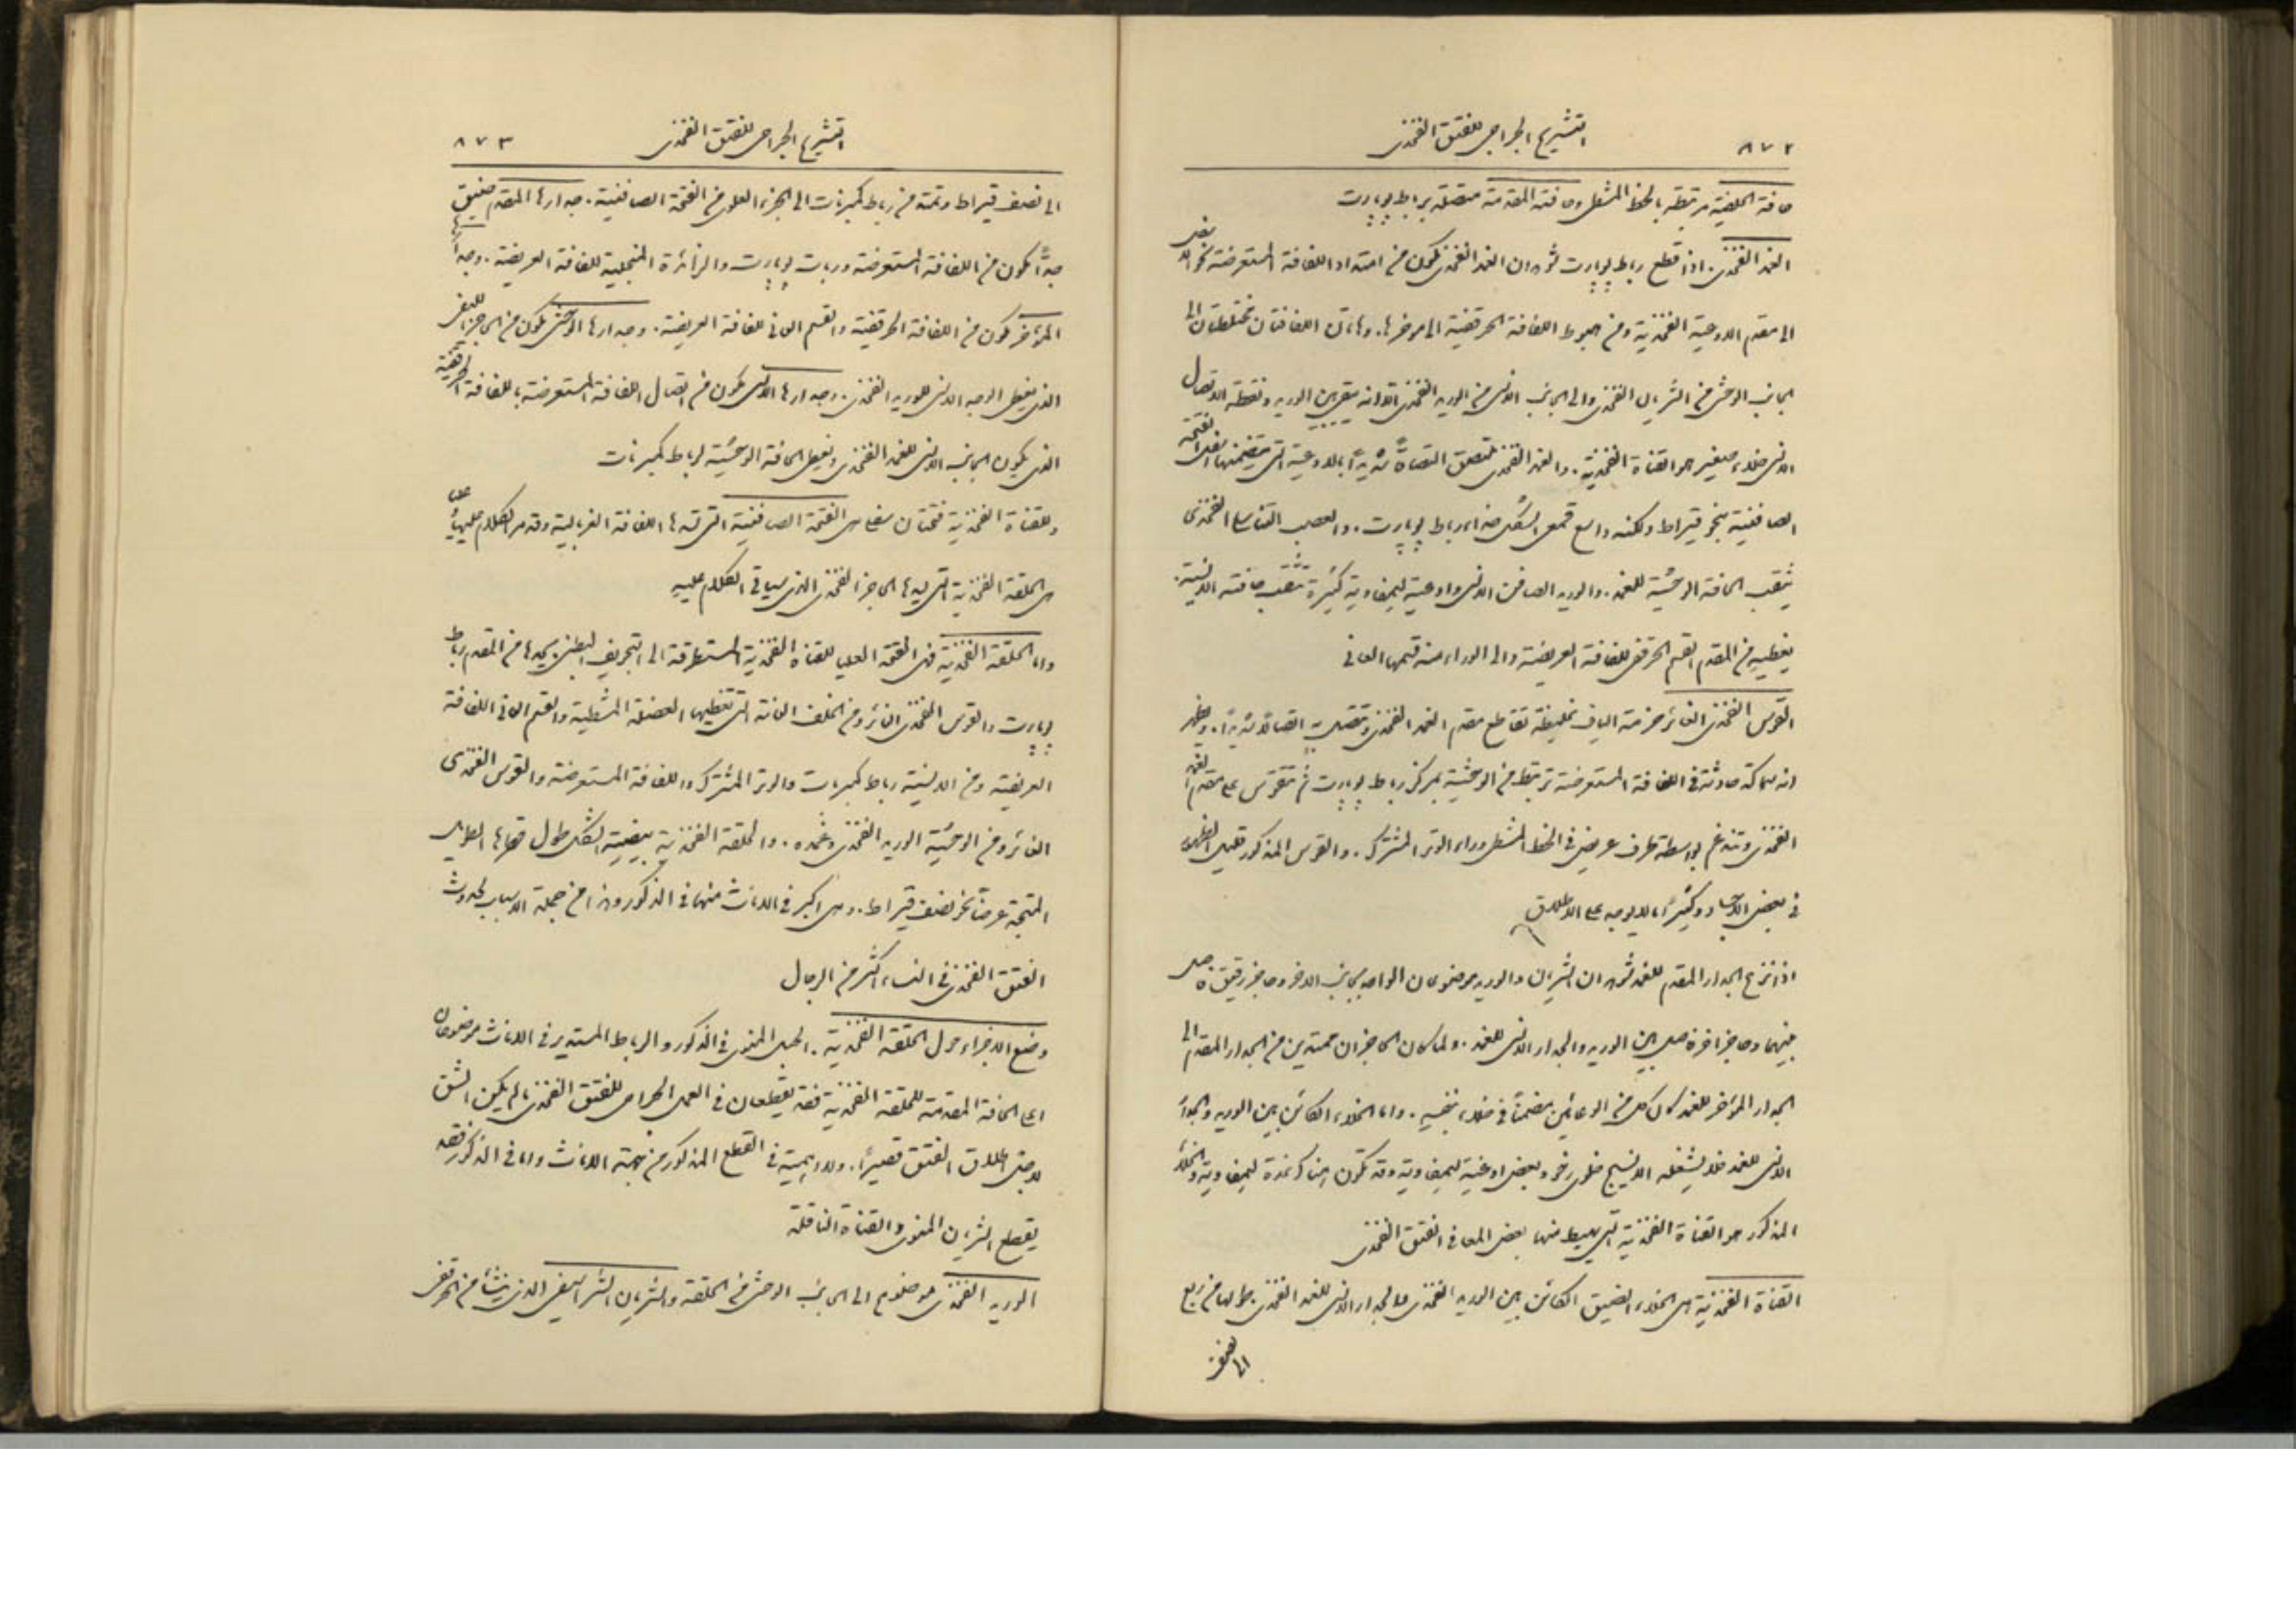 ٨٧٢ التشريح الجراحي للفتق الفخذي
حافته الخلفية مرتبطة بالخط المشطي وحافته المقدمة متصلة برباط بوبارت
الغمد الفخذي. اذا قطع رباط بوبارت شوهد ان الغمد الفخذي تكون من امتداد اللفافة المستعرضة نحو الاسفل
الى مقدم الاوعية الفخذية ومن هبوط اللفافة الحرقفية الى مؤخرها. وهاتان اللفافتان تختلطان الى
الجانب الوحشي من الشريان الفخذي والى الجانب الانسي من الوريد الفخذي الا انه يبقى بين الوريد ونقطة الاتصال
الانسي خلاء صغير هو القناة الفخذية. والغمد الفخذي ملتصق التصاقًا شديدًا بالاوعية التي يتضمنها اسفل الفتحة
الصافنية بنحو قيراط ولكنه واسع قمعي الشكل حذاء رباط بوبارت. والعصب التناسلي الفخذي
يثقب الحافة الوحشية للغمد. والوريد الصافن الانسي واوعية ليمفاوية كثيرة تثقب حافته الانسية.
يغطيه من المقدم القسم الحرقفي للفافة العريضة والى الوراء منه قسمها العاني
القوس الفخذي الغائر حزمة الياف غليظة تقاطع مقدم الغمد الفخذي وتتصل به اتصالا شديدًا. ويظهر
انه سماكة حادثة في اللفافة المستعرضة ترتبط من الوحشية بمركز رباط بوبارت ثم تتقوس على مقدم الغمد
الفخذي وتندغم بواسطة طرف عريض في الخط المشطي وراء الوتر المشترك. والقوس المذكور قليل الظهور
في بعض الاجساد وكثيرًا ما لا يوجد على الاطلاق
اذا نزع الجدار المقدم للغمد شوهد ان الشريان والوريد موضوعان الواحد بجانب الاخر وحاجز رقيق فاصل
بينهما وحاجز اخر فاصل بين الوريد والجدار الانسي للغمد. ولما كان الحاجزان ممتدين من الجدار المقدم الى
الجدار المؤخر للغمد كان كل من الوعائين مضمنًا في خلاء بنفسه. واما الخلاء الكائن بين الوريد والجدار
الانسي للغمد فلا يشغله الا نسيج خلوي رخو وبعض اوعية ليمفاوية وقد تكون هناك غدة ليمفاوية والخلاء
المذكور هو القناة الفخذية التي يهبط منها بعض المعا في الفتق الفخذي
القناة الفخذية هي الخلاء الضيق الكائن بين الوريد الفخذي والجدار الانسي للغمد الفخذي طولها من ربع
الى نصف
التشريح الجراحي للفتق الفخذي ٨٧٣
الى نصف قيراط وتمتد من رباط كمبرنات الى الجزء العلوي من الفتحة الصافنية. جدارها المقدم ضيق
جدًا تكون من اللفافة المستعرضة ورباط بوبارت والزائدة المنجلية للفافة العريضة. وجدارها
المؤخر تكون من اللفافة الحرقفية والقسم العاني للفافة العريضة. وجدارها الوحشي تكون من الحاجز الليفي
الذي يغطي الوجه الانسي للوريد الفخذي. وجدارها الانسي تكون من اتصال اللفافة المستعرضة باللفافة الحرقفية
الذي يكون الجانب الانسي للغمد الفخذي ويغطي الحافة الوحشية لرباط كمبرنات
وللقناة الفخذية فتحتان سفلى هي الفتحة الصافنية التي تسدها اللفافة الغربالية وقد مر الكلام عليها وعليا
هي الحلقة الفخذية التي يسدها الحاجز الفخذي الذي سياتي الكلام عليه
واما الحلقة الفخذية فهي الفتحة العليا للقناة الفخذية المستطرقة الى التجريف البطني يحدها من المقدم رباط
بوبارت والقوس الفخذي الغائر ومن الخلف العانة التي تغطيها العضلة المشطية والقسم العاني اللفافة
العريضة ومن الانسية رباط كمبرنات والوتر المشترك واللفافة المستعرضة والقوس الفخذي
الغائر ومن الوحشية الوريد الفخذي وغمده. والحلقة الفخذية بيضية الشكل طول قطرها الطويل
المتجه عرضًا نحو نصف قيراط. وهي اكبر في الاناث منها في الذكور وهذا من جملة الاسباب لحدوث
الفتق الفخذي في النساء اكثر من الرجال
وضع الاجزاء حول الحلقة الفخذية. الحبل المنوي في الذكور والرباط المستدير في الاناث موضوعان
اعلى الحافة المقدمة للحلقة الفخذية فقد يقطعان في العمل الجراحي للفتق الفخذي ما لم يكن الشق
لاجل اطلاق الفتق قصيرًا. ولا اهمية في القطع المذكور من جهة الاناث واما في الذكور فقد
يقطع الشريان المنوي والقناة الناقلة
الوريد الفخذي موضوع الى الجانب الوحشي من الحلقة والشريان الشراسيفي الذي ينشأ من الحرقفي